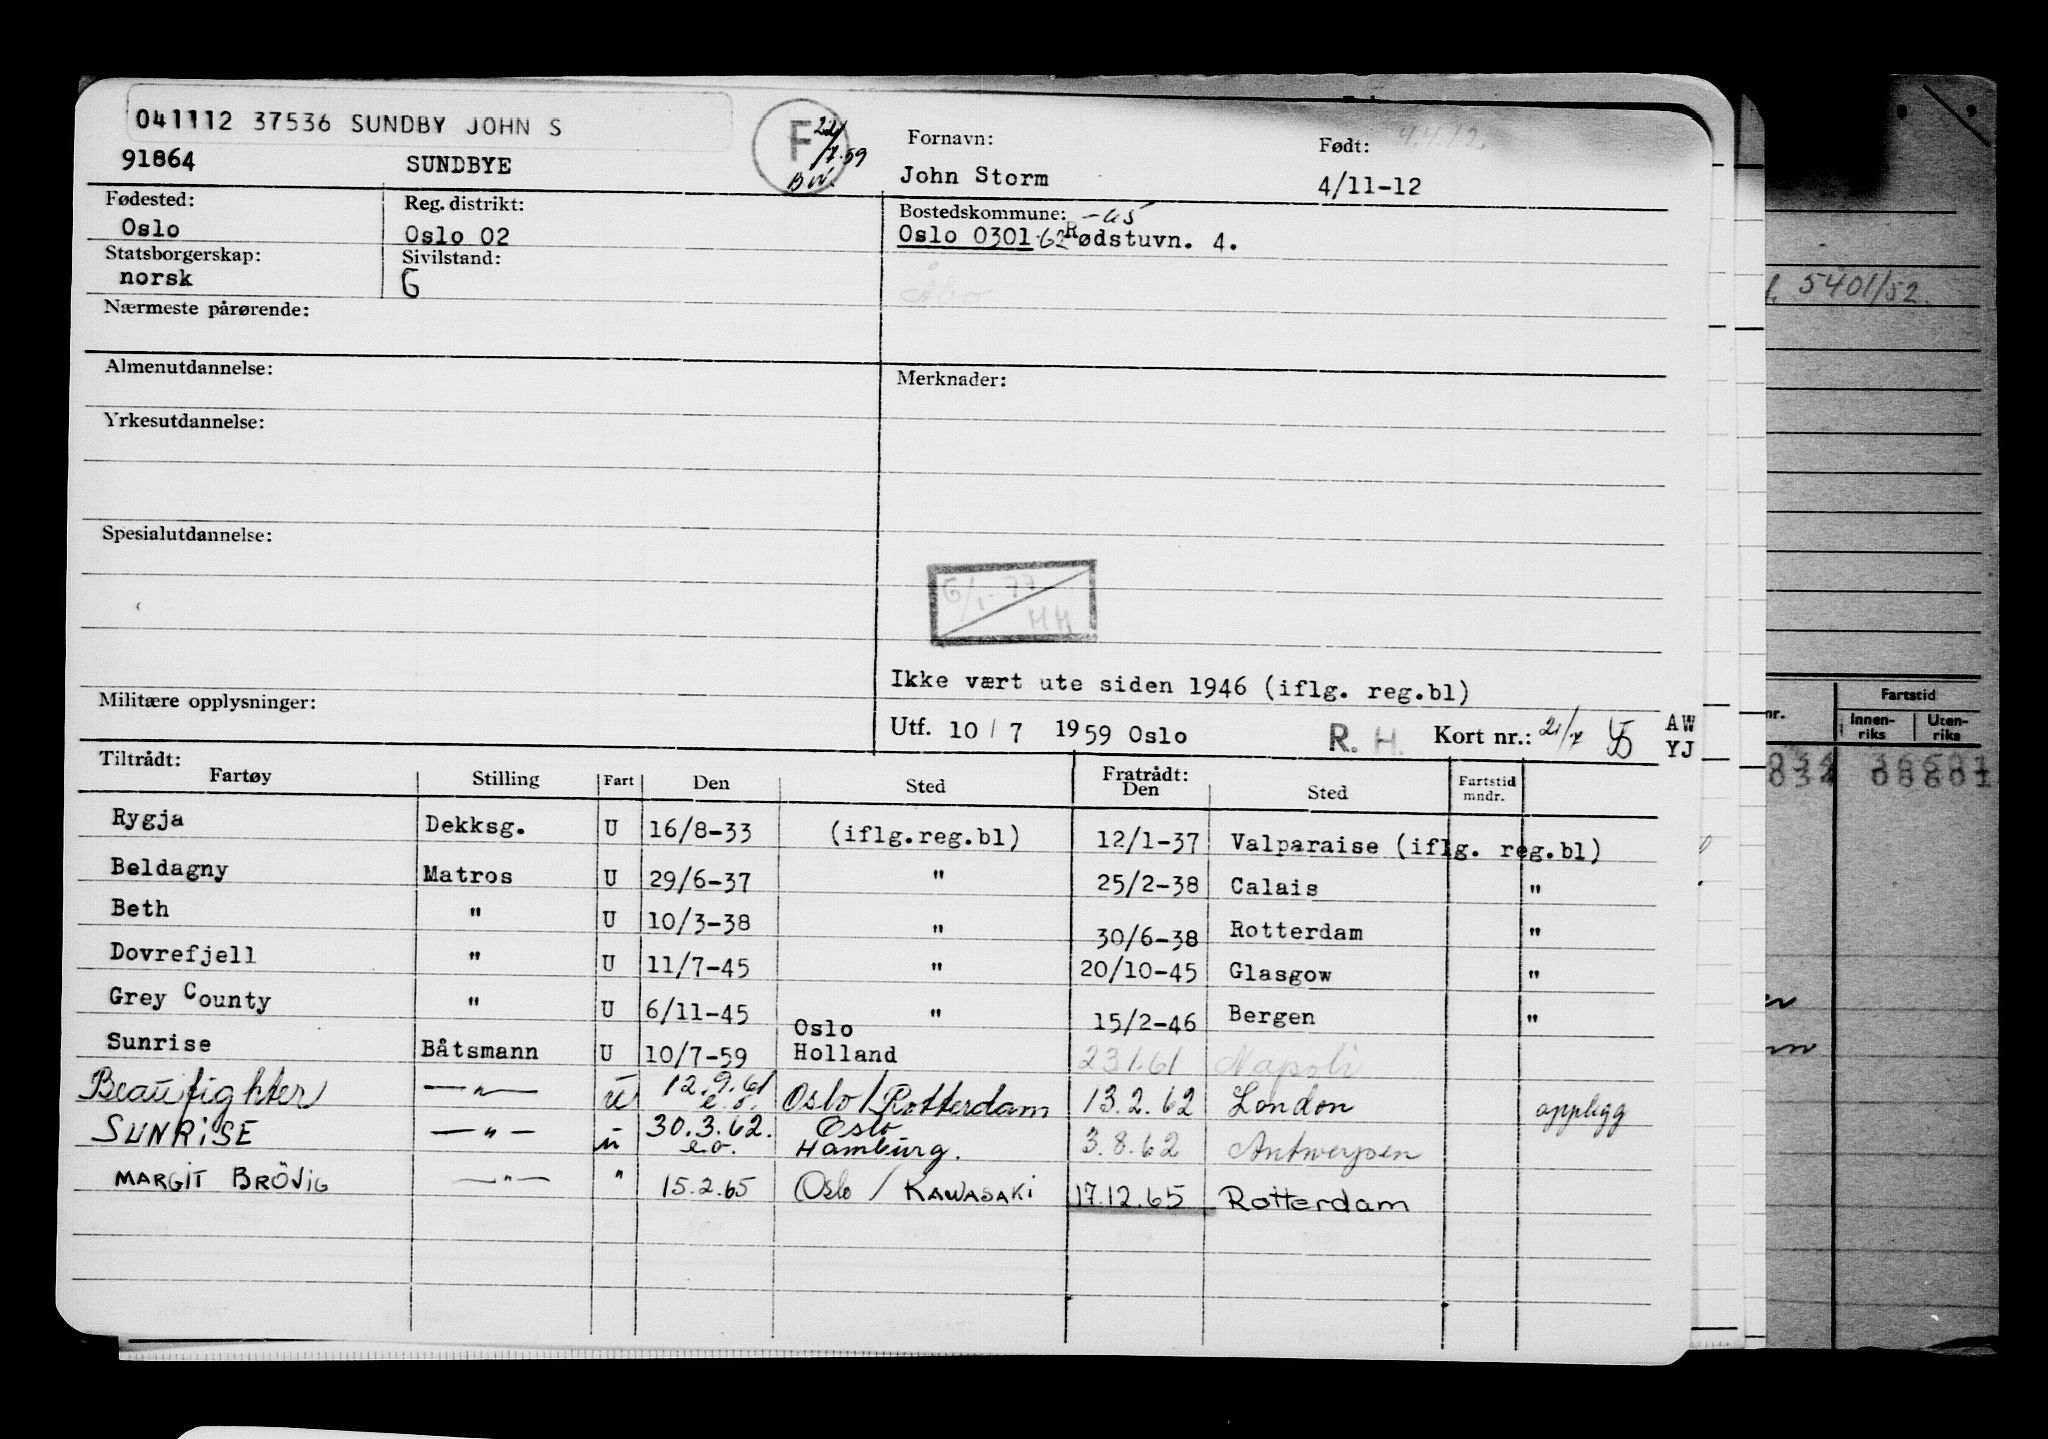 041112 37536 SUNDBY JOHN S
91864 SUNDBYE
F 22/7.59 BW.
Fornavn: Født:
John Storm 4/11-12
Fødested: Reg. distrikt: Bostedskommune: -65
Oslo Oslo 02 Oslo 0301-62 Rødstuvn. 4.
Statsborgerskap: Sivilstand:
norsk G
Åbo
Nærmeste pårørende:
Almenutdannelse: Merknader:
Yrkesutdannelse:
Spesialutdannelse:
6/1-77
HH
Ikke vært ute siden 1946 (iflg. reg.bl)
Militære opplysninger:
Utf. 10 / 7 1959 Oslo R. H. Kort nr.: 21/7 AW
YJ
Tiltrådt: Fratrådt:
Fartøy Stilling Fart Den Sted Den Sted Fartstid mndr.
Rygja Dekksg. U 16/8-33 (iflg.reg.bl) 12/1-37 Valparaise (iflg. reg.bl)
Beldagny Matros U 29/6-37 " 25/2-38 Calais "
Beth " U 10/3-38 " 30/6-38 Rotterdam "
Dovrefjell " U 11/7-45 " 20/10-45 Glasgow "
Grey County " U 6/11-45 " 15/2-46 Bergen "
Sunrise Båtsmann U 10/7-59 Oslo Holland 23/1.61 Napoli
Beaufighter —"— u 12.9.61 e.o. Oslo/Rotterdam 13.2.62 London opplegg
SUNRISE —"— u 30.3.62. e.o. Oslo Hamburg. 3.8.62 Antwerpen
MARGIT BRÖVIG —"— " 15.2.65 Oslo / KAWASAKI 17.12.65 Rotterdam
5401/52.
Fartstid
nr. Innen-riks Uten-riks